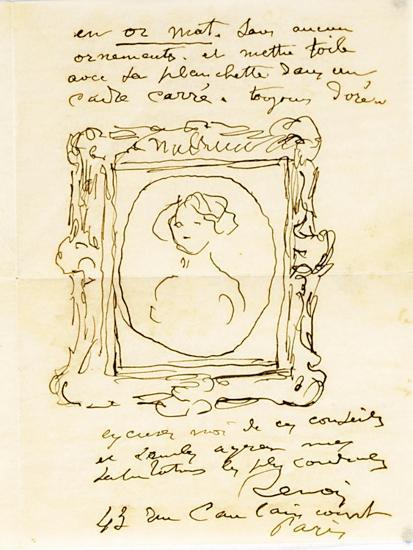 en or mat. Sans aucun
ornements. et mettre toile
avec sa planchette dans un
cadre carré. toujours doré
excusez moi de ces conseils
et veuillez agréer mes
salutations les plus cordiales
Renoir
43 rue Caulaincourt
Paris